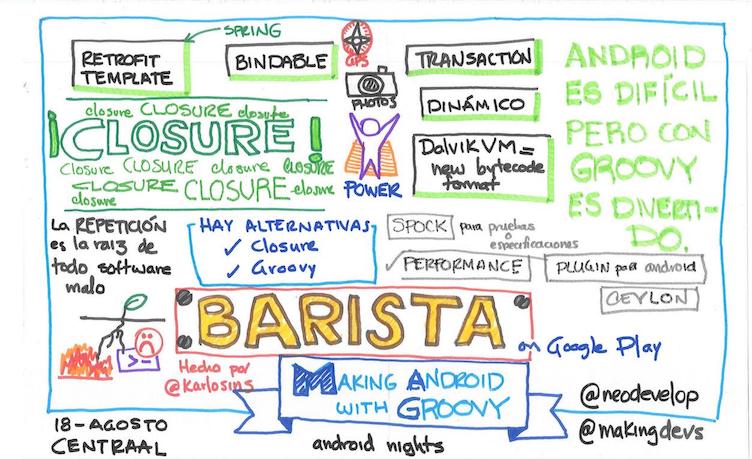 SPRING
RETROFIT
TEMPLATE
BINDABLE
GPS
PHOTOS
POWER
TRANSACTION
DINÁMICO
DalvikVM =
new bytecode
format
ANDROID
ES DIFÍCIL
PERO CON
GROOVY
ES DIVERTI-
DO.
closure CLOSURE closure
¡CLOSURE!
closure CLOSURE closure CLOSURE
CLOSURE CLOSURE closure
closure
La REPETICIÓN
es la raíz de
todo software
malo
HAY ALTERNATIVAS
✓ Closure
✓ Groovy
SPOCK para pruebas
o
especificaciones
✓ PERFORMANCE
PLUGIN para android
CEYLON
>-
BARISTA
on Google Play
Hecho por
@Karlosins
MAKING ANDROID
WITH GROOVY
@neodevelop
@makingdevs
18-AGOSTO
CENTRAAL
android nights